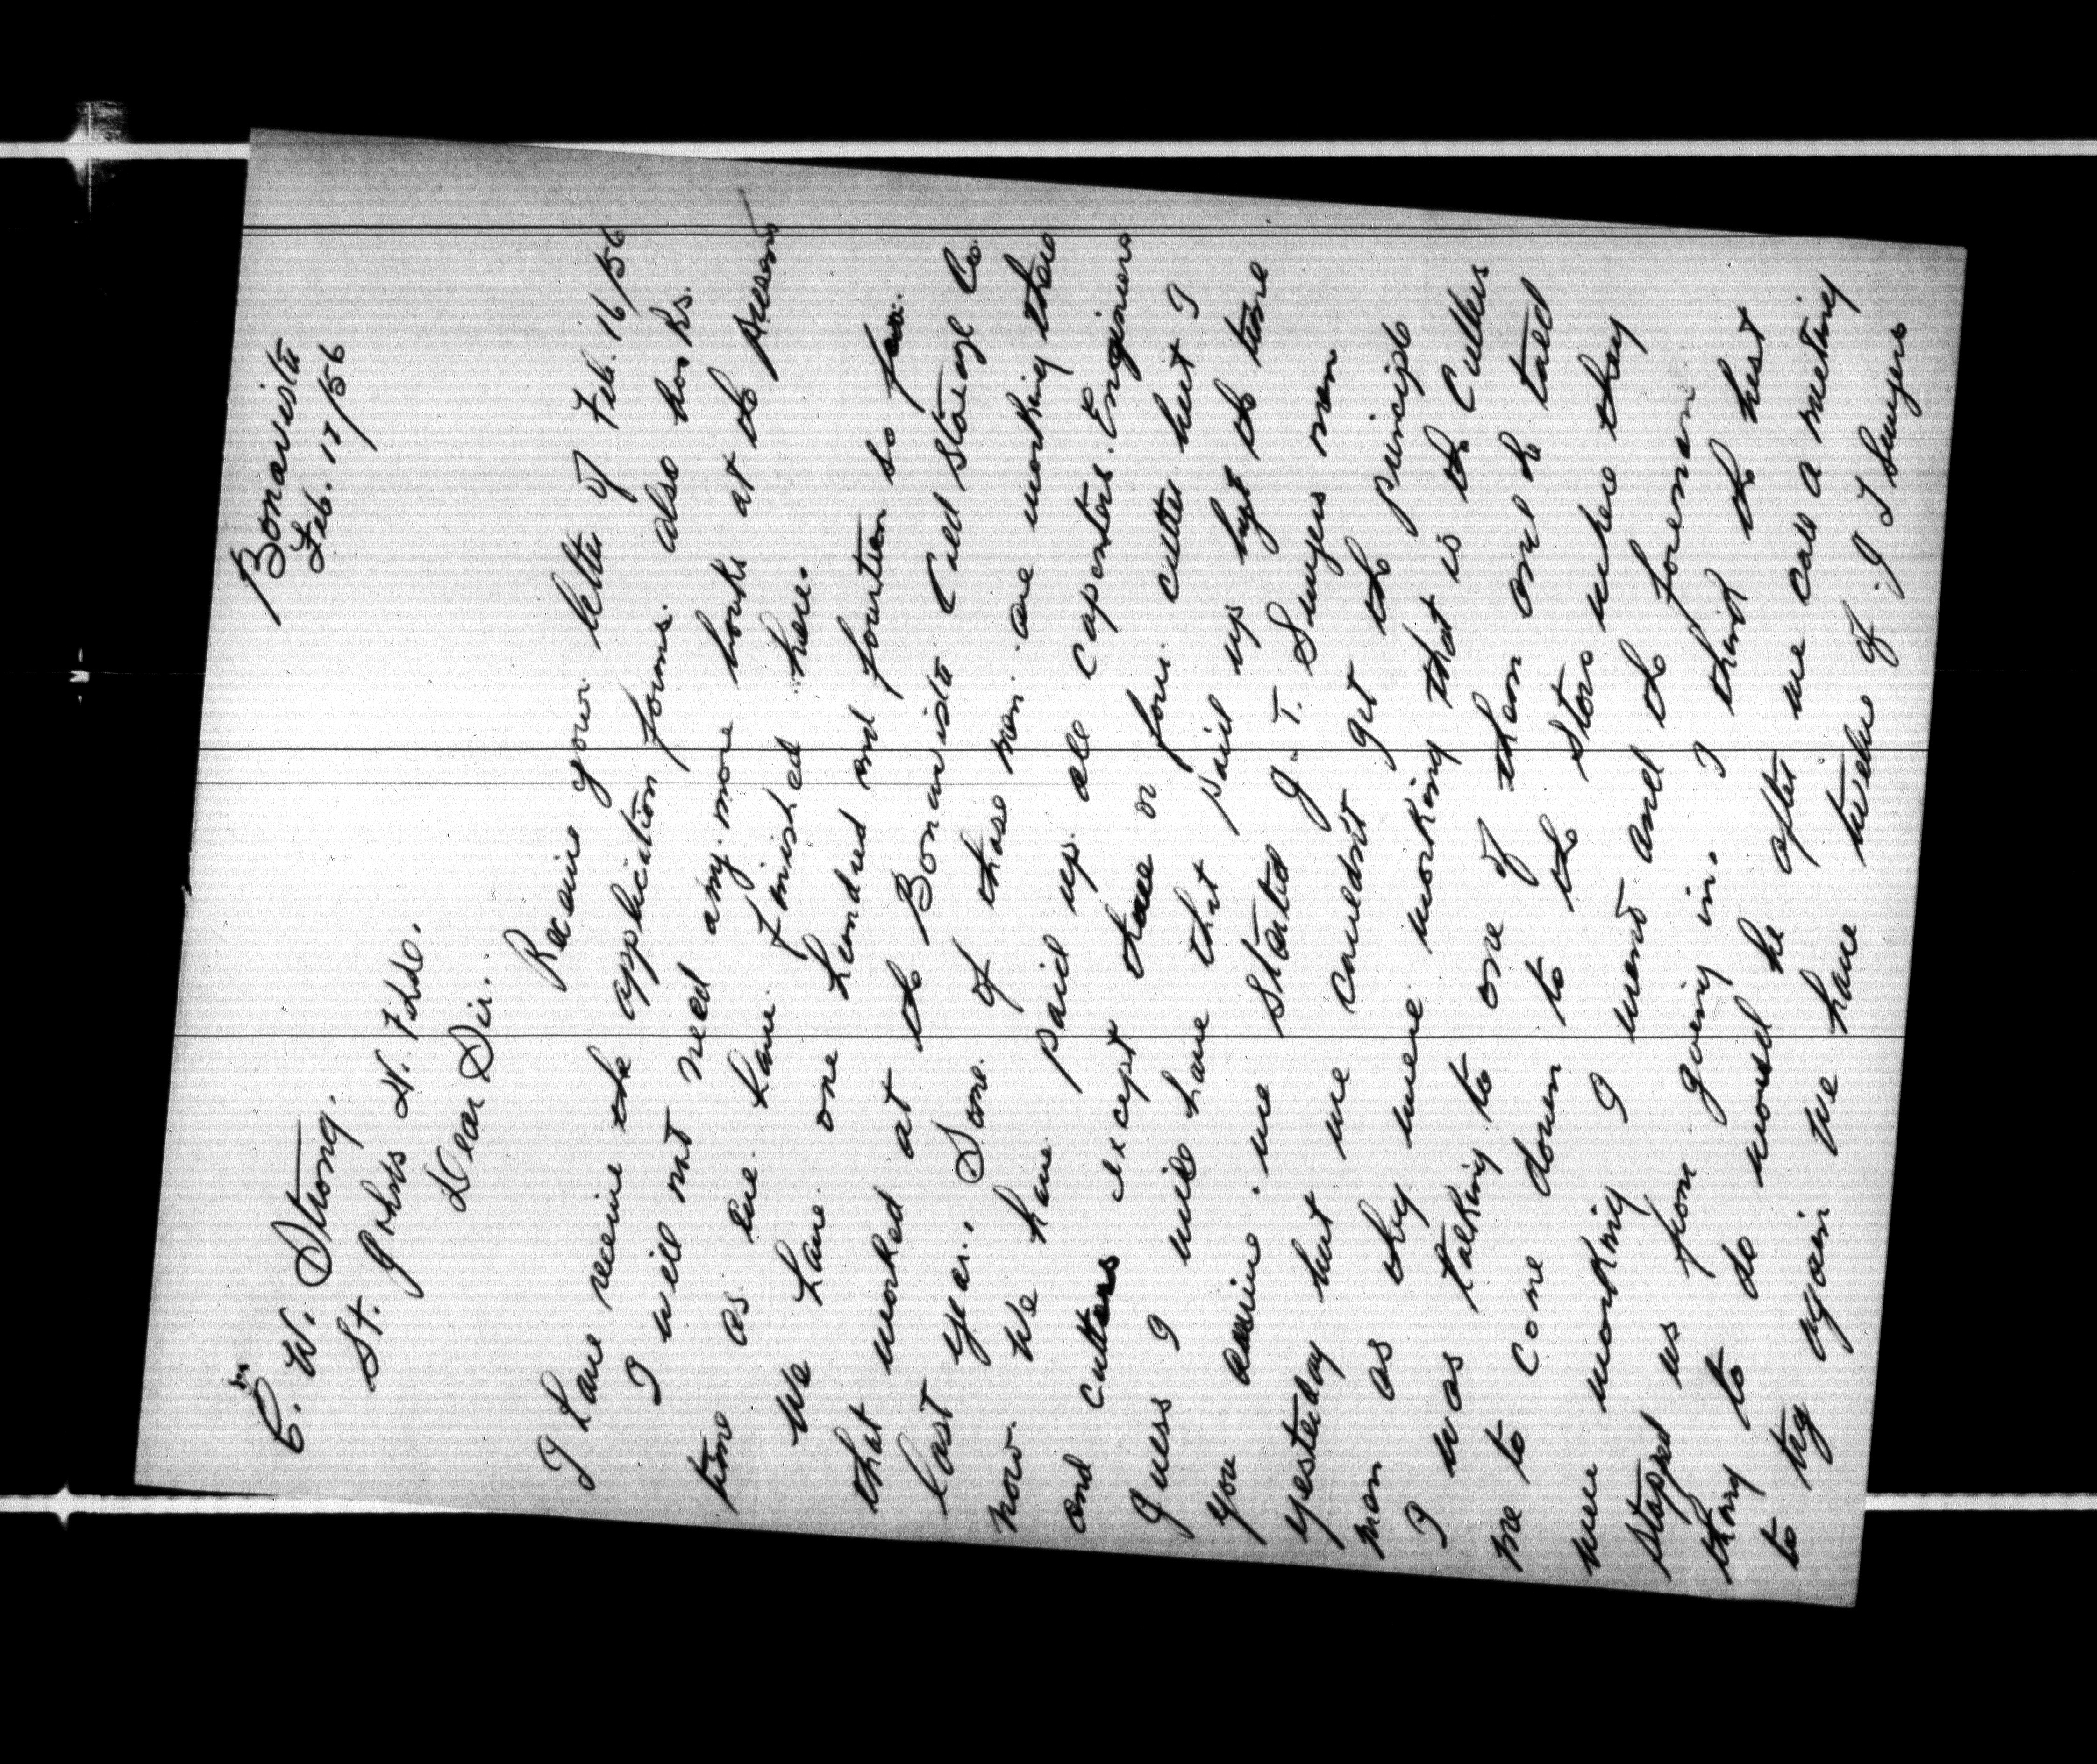 Bonavista
Feb. 17/56
C. W. Strong.
St. Johns N. Fld.
Dear Sir.
Receive your letter of Feb. 16/56
I have receive the application forms. also books.
I will not need any more books at the present
time as we have finished here.
We have one hundred and fourteen so far.
that worked at the Bonavista Cold Storage Co.
last year. Some of these men are working there
now. We have paid up all Caponters. Engineers
and cutters except three or four cutters but I
Guess I will have that paid up by the time
you arrive. we started J. T. Swyers men
yesterday but we couldnt get the principle
men as they were working that is the Cullers
I was talking to one of them and he told
me to come down to the store where they
were working I went and the foreman
stoped us from going in. I think the best
thing to do would be after we call a meeting
to try again We have twelve of J T Swyers